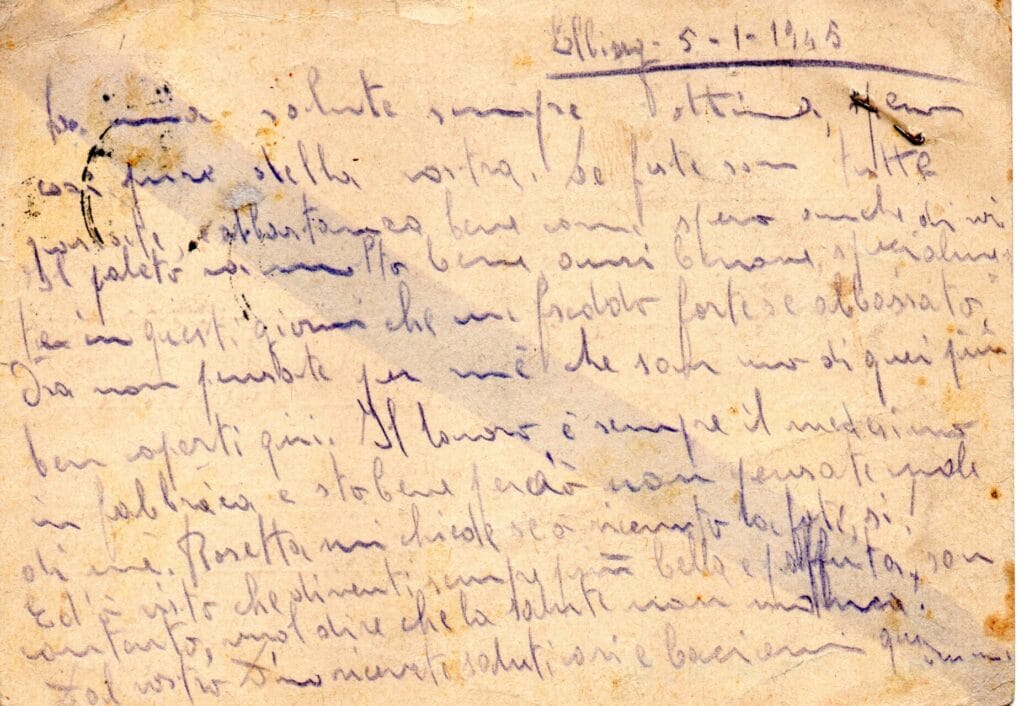 Elbing - 5 - 1 - 1945
La mia salute sempre ottima, spero
così pure della vostra. Le feste son tutte
passate, abbastanza bene come spero anche di voi
Il paletò va molto bene, anzi benone, specialmen
te in questi giorni che un freddo forte se abbassato,
Ma non pensate per me che son uno di quei più
ben coperti qui. Il lavoro è sempre il medesimo
in fabbrica e sto bene perciò non pensate male
di me. Rosetta mi chiede se ò ricevuto la foto, si!
Ed ò visto che diventi sempre più bella e paffuta, son
contento, vuol dire che la salute non manca!
Dal vostro Dino ricevete saluti cari e bacioni